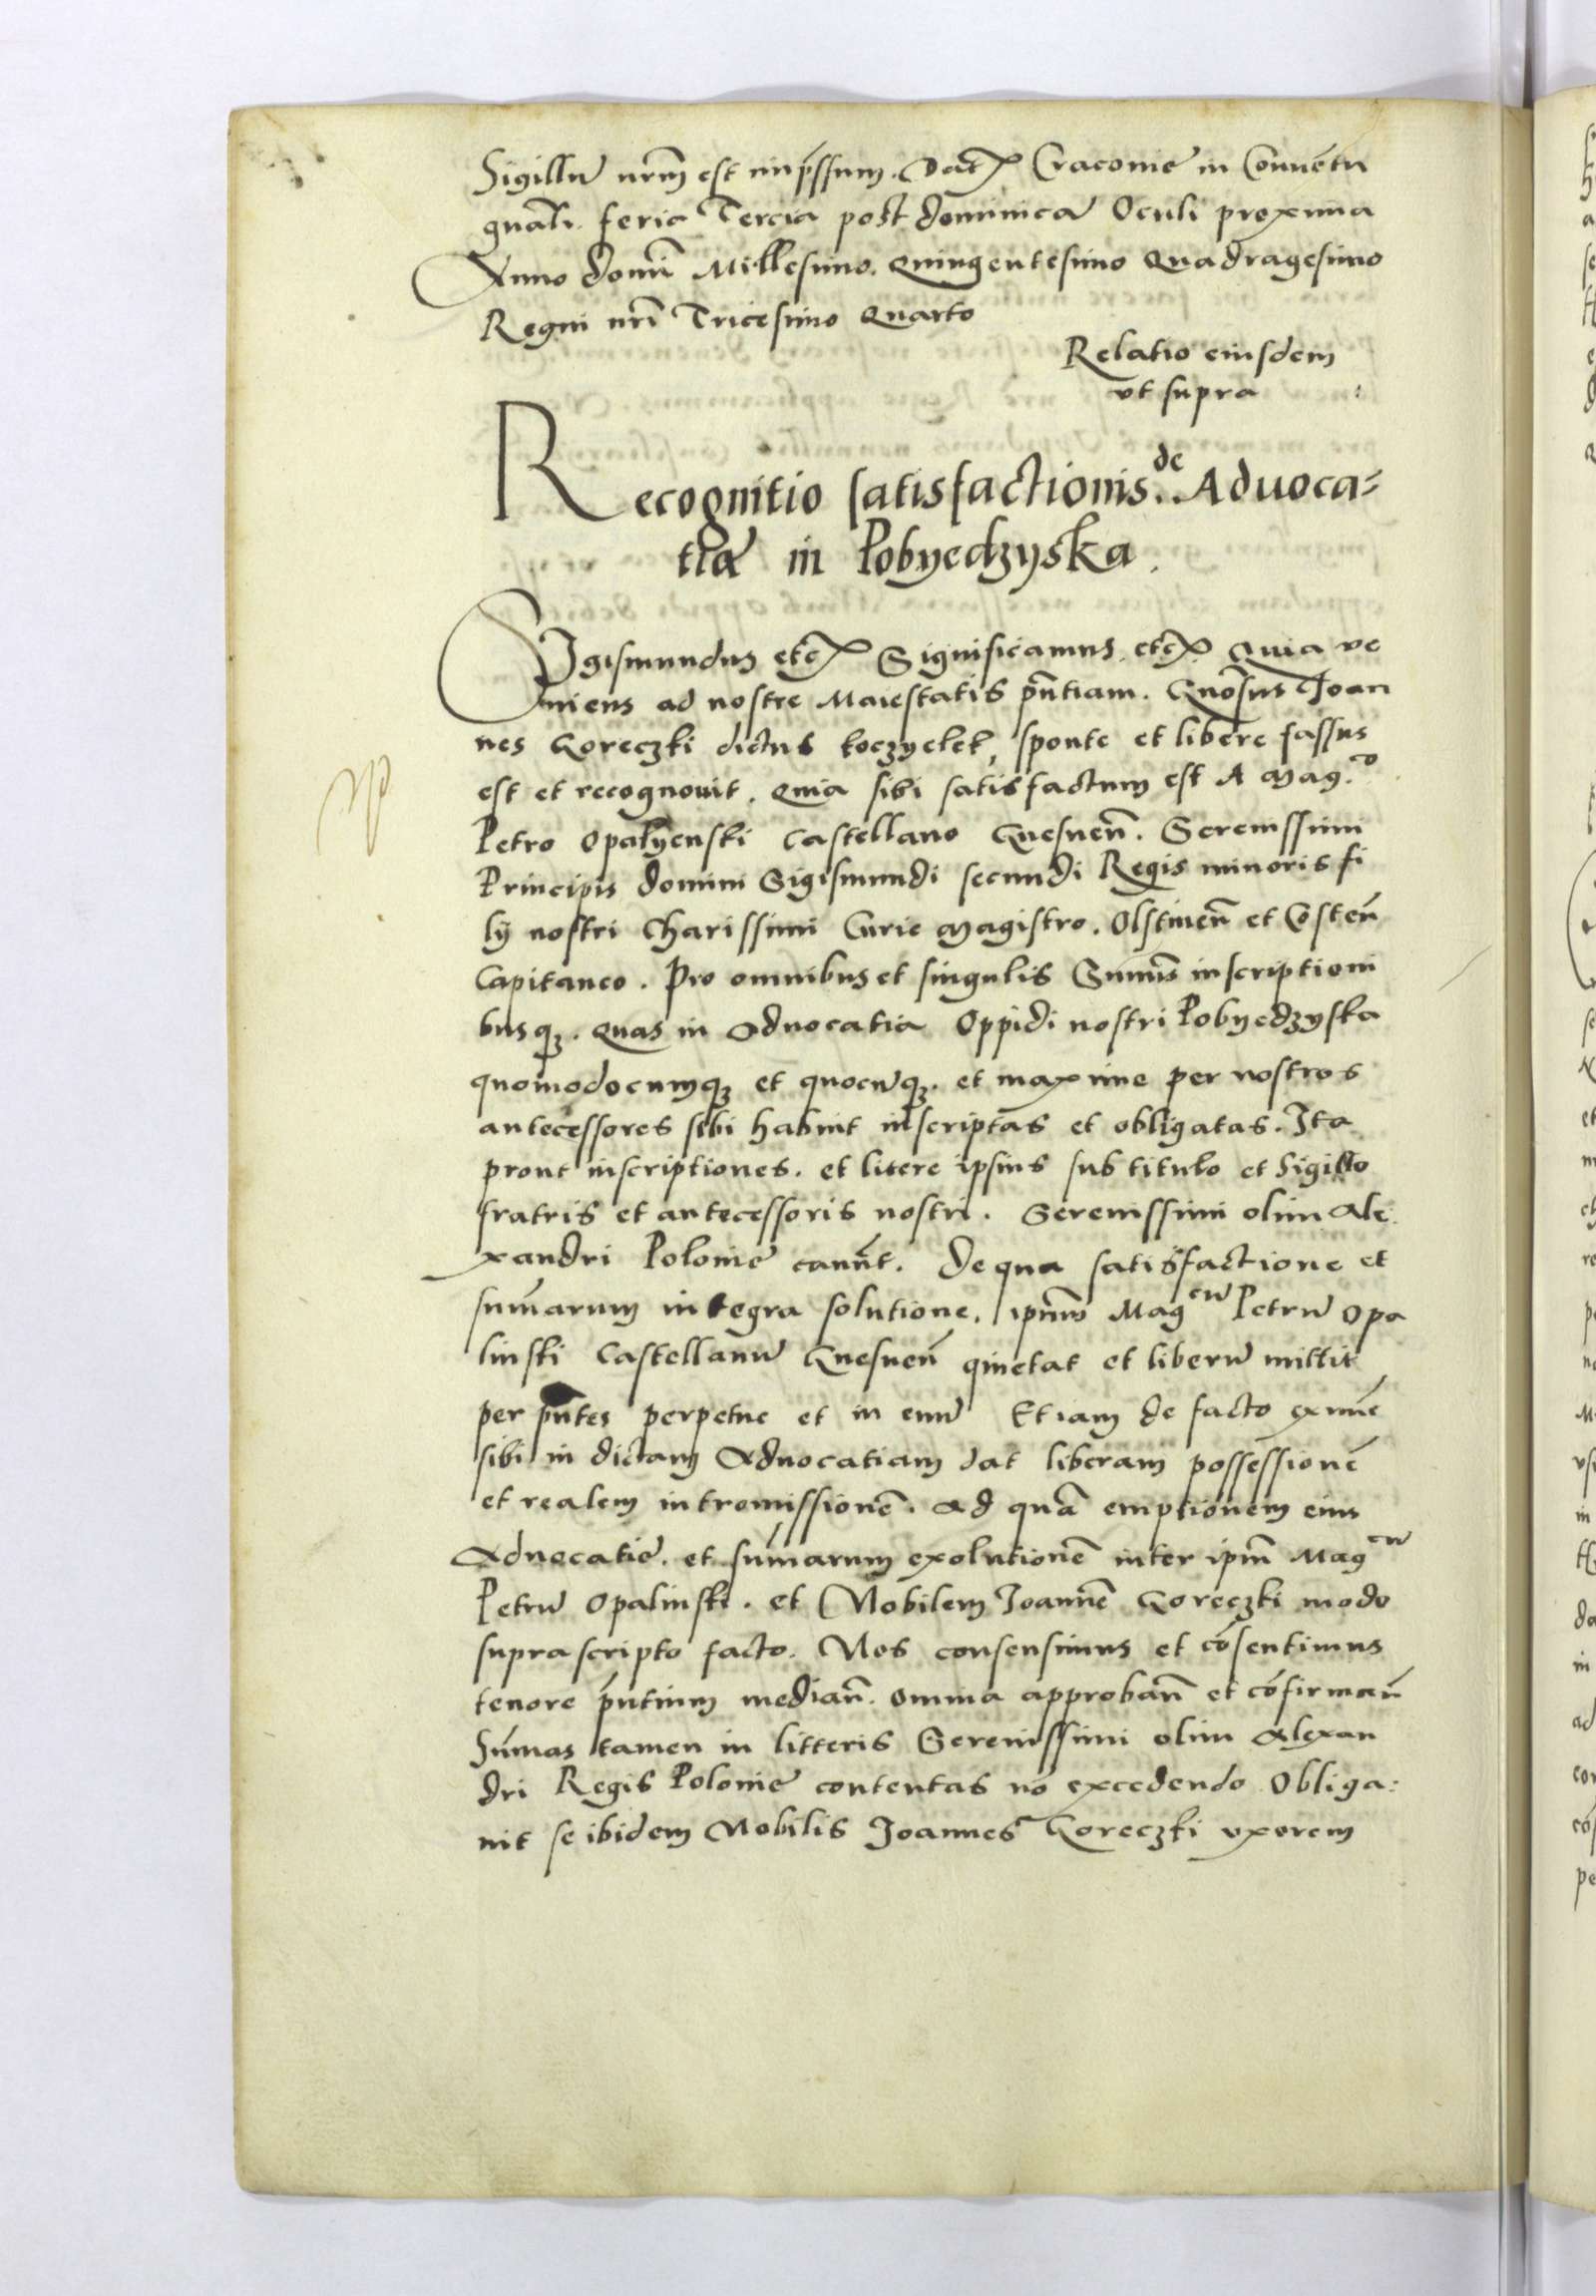 Sigillũ nr̃m est imp̃ssum. Datꝭ Cracovie in Conuẽtu
gnãli. feria Tercia post dominicã Oculi proxima
Anno domĩ Millesimo. Quingentesimo Quadragesimo
Regni nrĩ Tricesimo Quarto
Relatio eiusdem
vt supra
Recognitio satisfactionis de Aduoca=
tiã in Pobyedzyska.
Sigismundus etcꝭ Significamus. etcꝭ Quia ve
niens ad nostre Maiestatis pñtiam. Gnõsus Joan
nes Goreczki dictus koczyelek, sponte et libere fassus
est et recognouit. Quia sibi satisfactum est A Mag.co
Petro Opalyenski Castellano Gnesneñ. Serenissimi
Principis domini Sigismundi secundi Regis minoris fi
lij nostri Charissimi Curie Magistro. Olstineñ et Costeñ
Capitaneo. Pro omnibus et singulis Sum̃is inscriptioni
busqꝫ. Quas in Aduocatia Oppidi nostri Pobyedzyska
quomodocumqꝫ et quocũqꝫ. et maxime per nostros
antecessores sibi habuit inscriptas et obligatas. Ita
prout inscriptiones. et litere ipsius sub titulo et Sigillo
fratris et antecessoris nostri. Serenissimi olim Ale
xandri Polonie canũt. De qua satisfactione et
sum̃arum integra solutione. ipsum̃ Mag.cũ Petrũ Opa
linski Castellanũ Gnesneñ quietat et liberũ mittit
per pñtes perpetue et in euũ Etiam de facto exnũc
sibi in dictam Aduocatiam dat liberam possessionẽ
et realem intromissionẽ. Ad quã emptionem eius
Aduocatie. et sum̃arum exolutionẽ inter ipm̃ Mag.cũ
Petrũ Opalinski. et Nobilem Joannẽ Goreczki modo
supra scripto facto. Nos consensimus et cõsentimus
tenore p̃ntium mediañ. omnia approbañ et cõfirmañ
Sum̃as tamen in litteris Serenissimi olim Alexan
dri Regis Polonie contentas nõ excedendo Obliga:
uit se ibidem Nobilis Joannes Goreczki vxorem